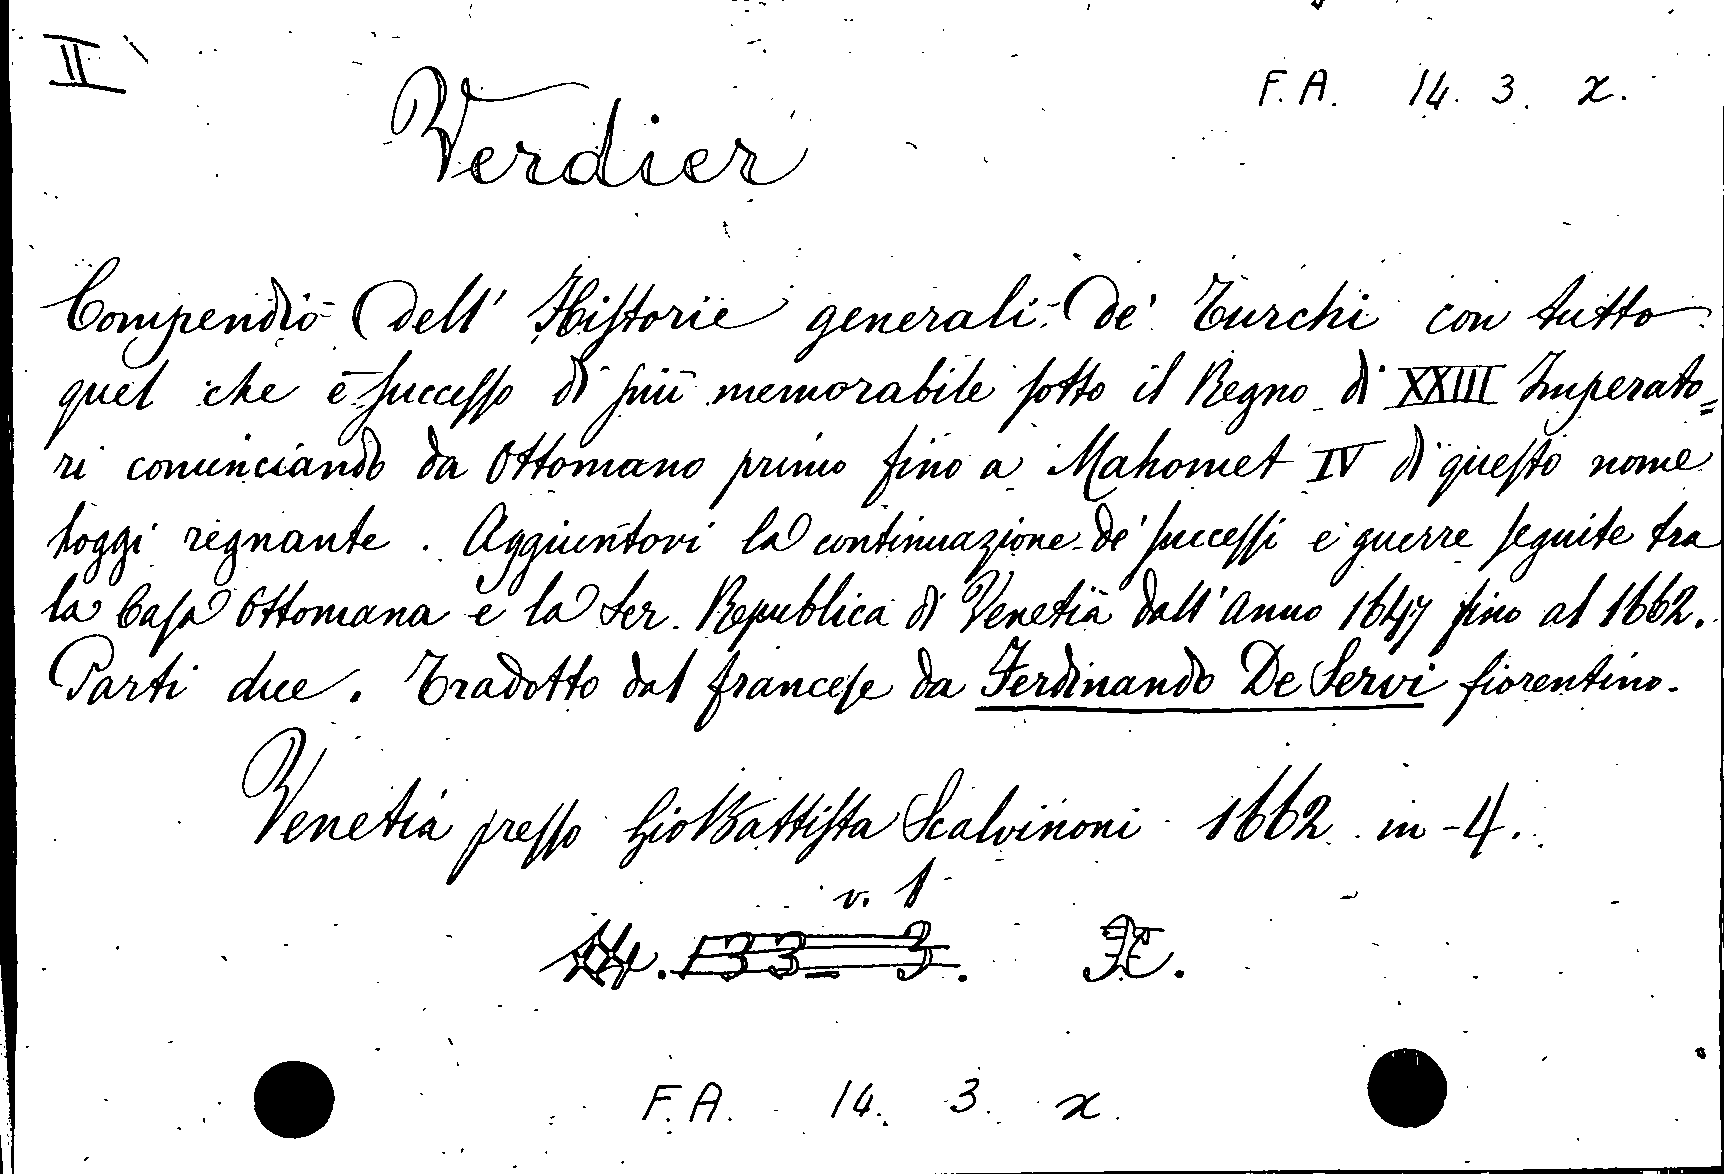 II
F. A. 14. 3. x.
Verdier
Compendio dell' Historie generali de' Turchi con tutto
quel che è successo di più memorabile sotto il Regno di XXIII Imperato=
ri cominciando da Ottomano primo fino a Mahomet IV di questo nome
hoggi regnante. Aggiuntovi la continuazione de' successi e guerre seguite tra
la Casa Ottomana e la Ser. Republica di Venetia dall' anno 1647 fino al 1662.
Parti due. Tradotto dal francese da Ferdinando De Servi fiorentino.
Venetia presso Gio Battista Scalvinoni 1662 in-4.
v. 1
14. 133-3. X.
F. A. 14. 3. x.